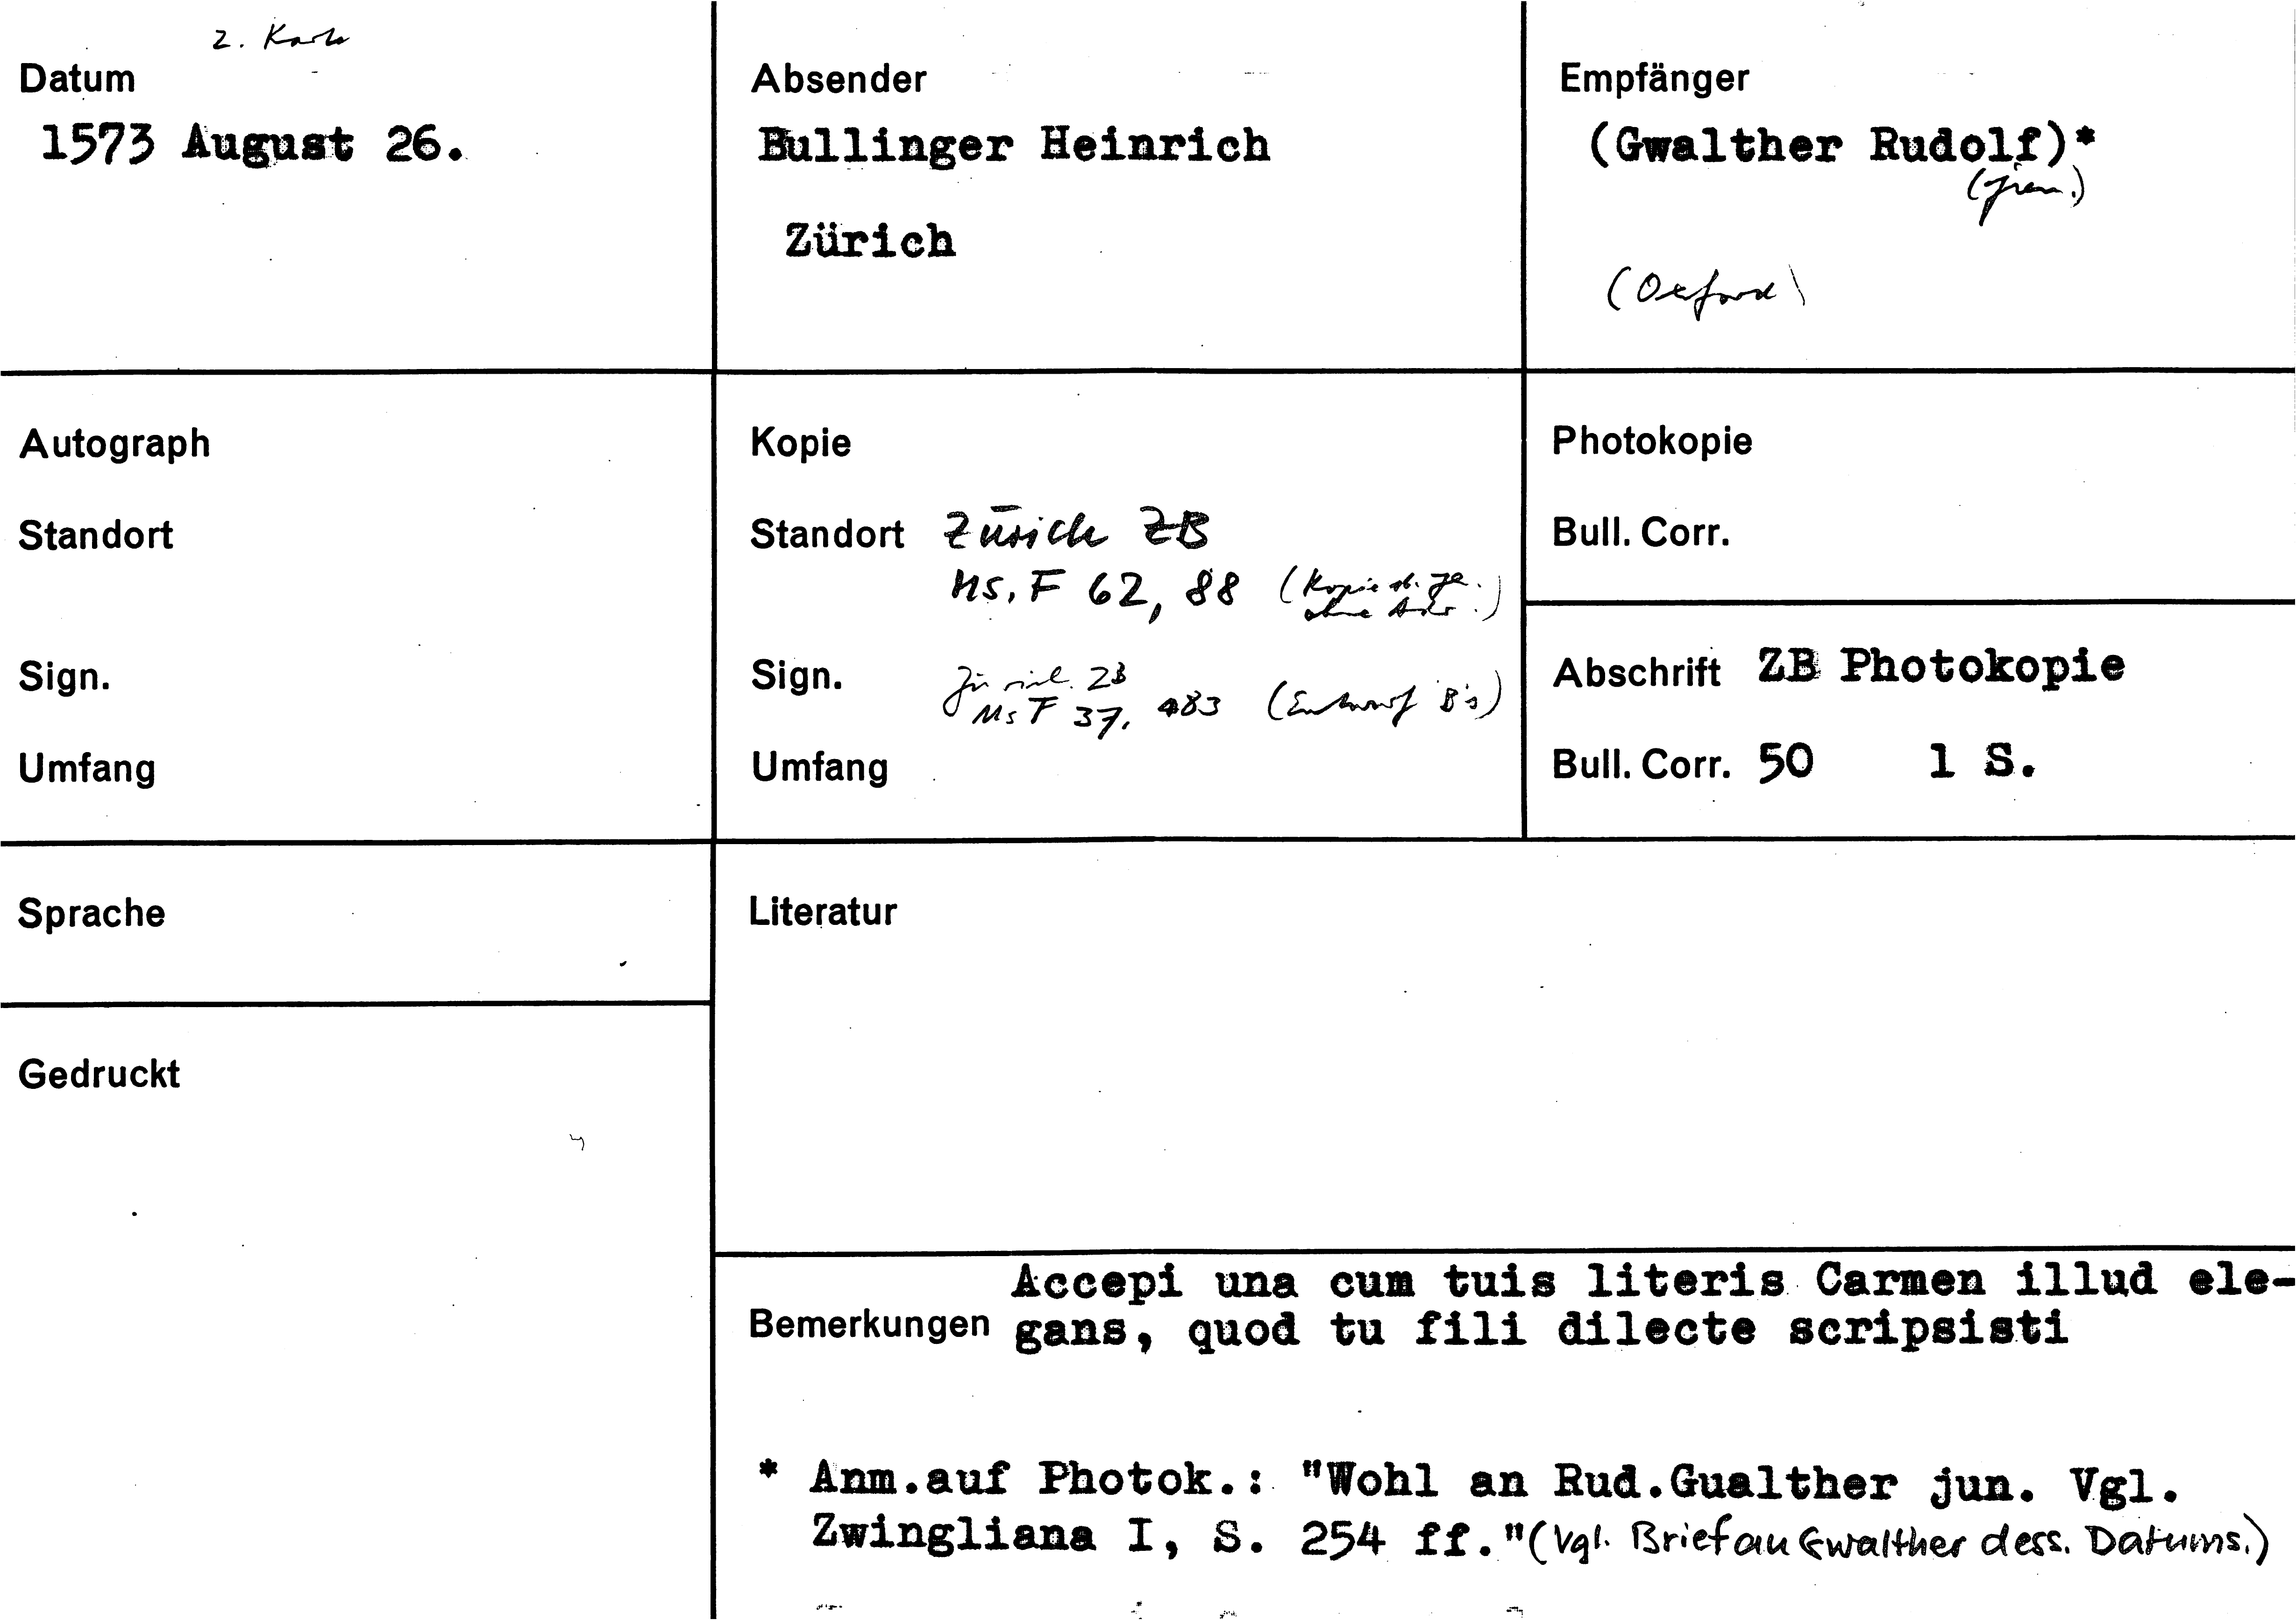 2. Karte
Datum
1573 August 26.
Absender
Bullinger Heinrich
Zürich
Empfänger
(Gwalther Rudolf)*
(jun.)
(Oxford)
Autograph
Standort
Sign.
Umfang
Kopie
Standort Zürich ZB
Ms. F 62, 88 (Kopie
ohne Adr.)
Sign. Zürich ZB
Ms F 37, 483 (Entwurf B's)
Umfang
Photokopie
Bull. Corr.
Abschrift ZB Photokopie
Bull. Corr. 50 1 S.
Sprache
Gedruckt
Literatur
Accepi una cum tuis literis Carmen illud ele-
Bemerkungen gans, quod tu fili dilecte scripsisti
* Anm.auf Photok.: "Wohl an Rud.Gualther jun. Vgl.
Zwingliana I, S. 254 ff."(Vgl. Brief an Gwalther dess. Datums.)